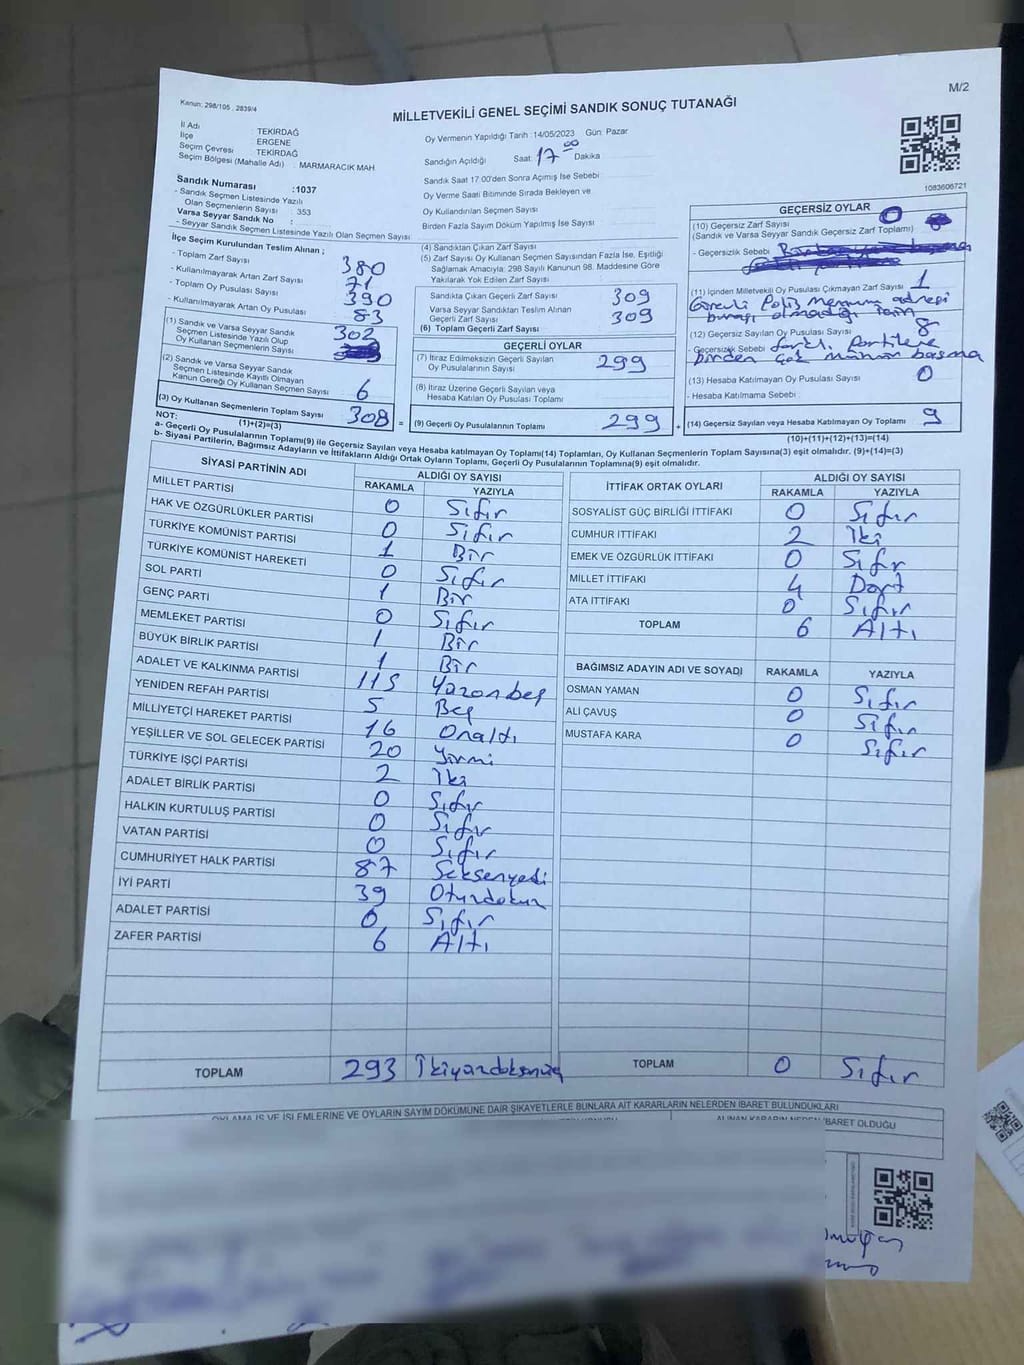 M/2
Kanun: 298/105 , 2839/4
MİLLETVEKİLİ GENEL SEÇİMİ SANDIK SONUÇ TUTANAĞI
İl Adı : TEKİRDAĞ
İlçe : ERGENE
Seçim Çevresi : TEKİRDAĞ
Seçim Bölgesi (Mahalle Adı) : MARMARACIK MAH
Sandık Numarası :1037
- Sandık Seçmen Listesinde Yazılı
Olan Seçmenlerin Sayısı : 353
Varsa Seyyar Sandık No :
- Seyyar Sandık Seçmen Listesinde Yazılı Olan Seçmen Sayısı
Oy Vermenin Yapıldığı Tarih :14/05/2023 Gün: Pazar
Sandığın Açıldığı Saat: 17 00 Dakika
Sandık Saat 17.00'den Sonra Açımış İse Sebebi
Oy Verme Saati Bitiminde Sırada Bekleyen ve
Oy Kullandırılan Seçmen Sayısı
Birden Fazla Sayım Döküm Yapılmış İse Sayısı
1083606721
İlçe Seçim Kurulundan Teslim Alınan ;
- Toplam Zarf Sayısı 380
- Kullanılmayarak Artan Zarf Sayısı 71
- Toplam Oy Pusulası Sayısı 390
- Kullanılmayarak Artan Oy Pusulası 83
(1) Sandık ve Varsa Seyyar Sandık
Seçmen Listesinde Yazılı Olup
Oy Kullanan Seçmenlerin Sayısı 302
(2) Sandık ve Varsa Seyyar Sandık
Seçmen Listesinde Kayıtlı Olmayan
Kanun Gereği Oy Kullanan Seçmen Sayısı 6
(3) Oy Kullanan Seçmenlerin Toplam Sayısı 308 =
(1)+(2)=(3)
(4) Sandıktan Çıkan Zarf Sayısı
(5) Zarf Sayısı Oy Kullanan Seçmen Sayısından Fazla İse, Eşitliği
Sağlamak Amacıyla; 298 Sayılı Kanunun 98. Maddesine Göre
Yakılarak Yok Edilen Zarf Sayısı
Sandıkta Çıkan Geçerli Zarf Sayısı 309
Varsa Seyyar Sandıktan Teslim Alınan
Geçerli Zarf Sayısı 309
(6) Toplam Geçerli Zarf Sayısı
GEÇERLİ OYLAR
(7) İtiraz Edilmeksizin Geçerli Sayılan
Oy Pusulalarının Sayısı 299
(8) İtiraz Üzerine Geçerli Sayılan veya
Hesaba Katılan Oy Pusulası Toplamı
(9) Geçerli Oy Pusulalarının Toplamı 299 +
GEÇERSİZ OYLAR
(10) Geçersiz Zarf Sayısı 0
(Sandık ve Varsa Seyyar Sandık Geçersiz Zarf Toplamı)
- Geçersizlik Sebebi
(11) İçinden Milletvekili Oy Pusulası Çıkmayan Zarf Sayısı 1
Görevli Polis Memurunun adresi
burası olmadığı için
(12) Geçersiz Sayılan Oy Pusulası Sayısı 8
- Geçersizlik Sebebi farklı Partilere
birden çok mühür basma
(13) Hesaba Katılmayan Oy Pusulası Sayısı 0
- Hesaba Katılmama Sebebi :
(14) Geçersiz Sayılan veya Hesaba Katılmayan Oy Toplamı 9
(10)+(11)+(12)+(13)=(14)
NOT:
a- Geçerli Oy Pusulalarının Toplamı(9) ile Geçersiz Sayılan veya Hesaba katılmayan Oy Toplamı(14) Toplamları, Oy Kullanan Seçmenlerin Toplam Sayısına(3) eşit olmalıdır. (9)+(14)=(3)
b- Siyasi Partilerin, Bağımsız Adayların ve İttifakların Aldığı Ortak Oyların Toplamı, Geçerli Oy Pusulalarının Toplamına(9) eşit olmalıdır.
SİYASİ PARTİNİN ADI ALDIĞI OY SAYISI
RAKAMLA YAZIYLA
MİLLET PARTİSİ 0 Sıfır
HAK VE ÖZGÜRLÜKLER PARTİSİ 0 Sıfır
TÜRKİYE KOMÜNİST PARTİSİ 1 Bir
TÜRKİYE KOMÜNİST HAREKETİ 0 Sıfır
SOL PARTİ 1 Bir
GENÇ PARTİ 0 Sıfır
MEMLEKET PARTİSİ 1 Bir
BÜYÜK BİRLİK PARTİSİ 1 Bir
ADALET VE KALKINMA PARTİSİ 115 Yüzonbeş
YENİDEN REFAH PARTİSİ 5 Beş
MİLLİYETÇİ HAREKET PARTİSİ 16 Onaltı
YEŞİLLER VE SOL GELECEK PARTİSİ 20 Yirmi
TÜRKİYE İŞÇİ PARTİSİ 2 İki
ADALET BİRLİK PARTİSİ 0 Sıfır
HALKIN KURTULUŞ PARTİSİ 0 Sıfır
VATAN PARTİSİ 0 Sıfır
CUMHURİYET HALK PARTİSİ 87 Seksenyedi
İYİ PARTİ 39 Otuzdokuz
ADALET PARTİSİ 0 Sıfır
ZAFER PARTİSİ 6 Altı
TOPLAM 293 İkiyüzdoksanüç
İTTİFAK ORTAK OYLARI ALDIĞI OY SAYISI
RAKAMLA YAZIYLA
SOSYALİST GÜÇ BİRLİĞİ İTTİFAKI 0 Sıfır
CUMHUR İTTİFAKI 2 İki
EMEK VE ÖZGÜRLÜK İTTİFAKI 0 Sıfır
MİLLET İTTİFAKI 4 Dört
ATA İTTİFAKI 0 Sıfır
TOPLAM 6 Altı
BAĞIMSIZ ADAYIN ADI VE SOYADI RAKAMLA YAZIYLA
OSMAN YAMAN 0 Sıfır
ALİ ÇAVUŞ 0 Sıfır
MUSTAFA KARA 0 Sıfır
TOPLAM 0 Sıfır
OYLAMA İŞ VE İŞLEMLERİNE VE OYLARIN SAYIM DÖKÜMÜNE DAİR ŞİKAYETLERLE BUNLARA AİT KARARLARIN NELERDEN İBARET BULUNDUKLARI
ALINAN KARARIN NEDEN İBARET OLDUĞU